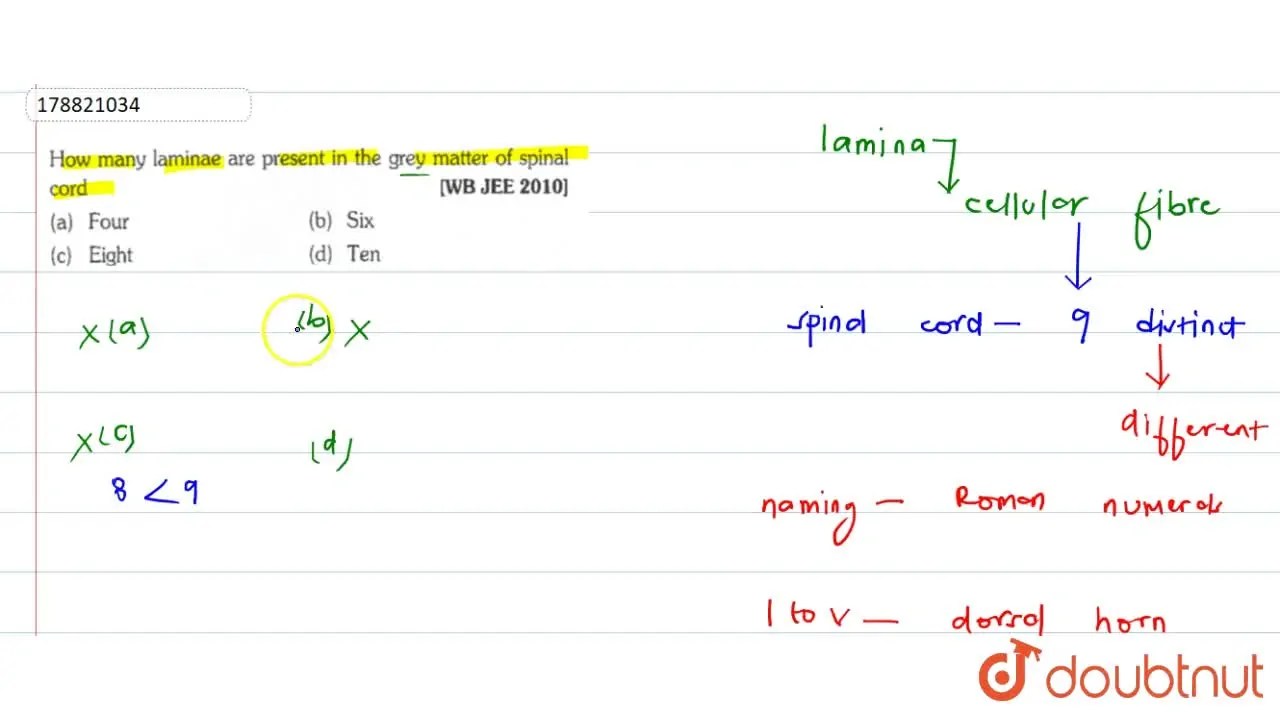 178821034
How many laminae are present in the grey matter of spinal
cord [WB JEE 2010]
(a) Four (b) Six
(c) Eight (d) Ten
X (a) (b) X
X (c) (d)
8 < 9
lamina
cellular fibre
spinal cord — 9 distinct
different
naming — Roman numerals
1 to V — dorsal horn
doubtnut